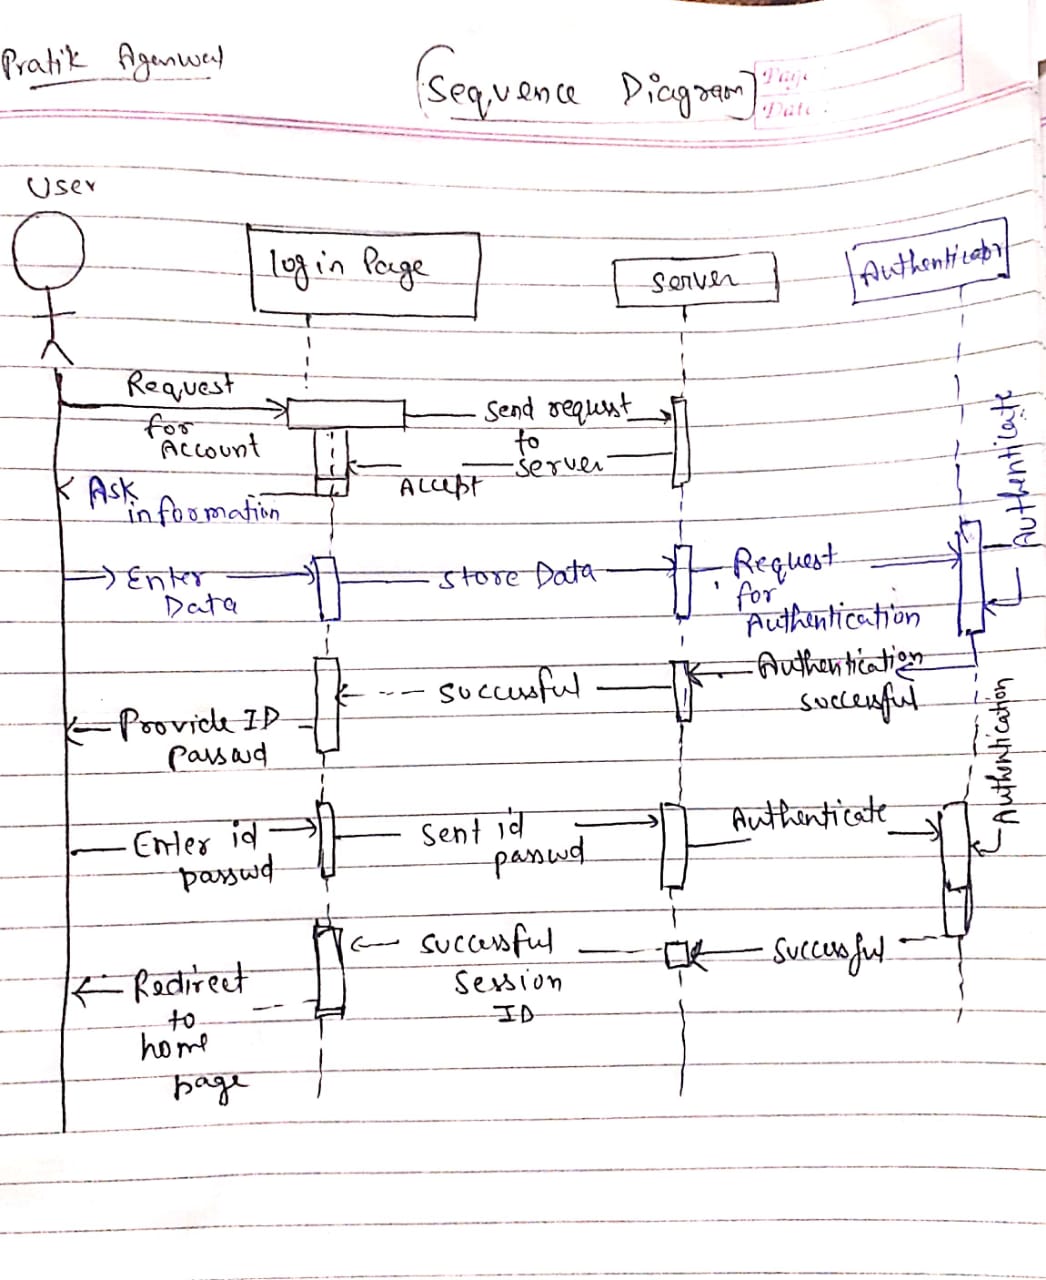 Pratik Agarwal
Sequence Diagram
Page :
Date :
User
login Page
Server
Authenticator
Request
for
Account
Send request
to
server
Accept
Ask
information
Authenticate
Enter
Data
Store Data
Request
for
Authentication
Authentication
successful
successful
Provide ID
Passwd
Authentication
Enter id
passwd
Sent id
passwd
Authenticate
successful
Session
ID
Successful
Redirect
to
home
page